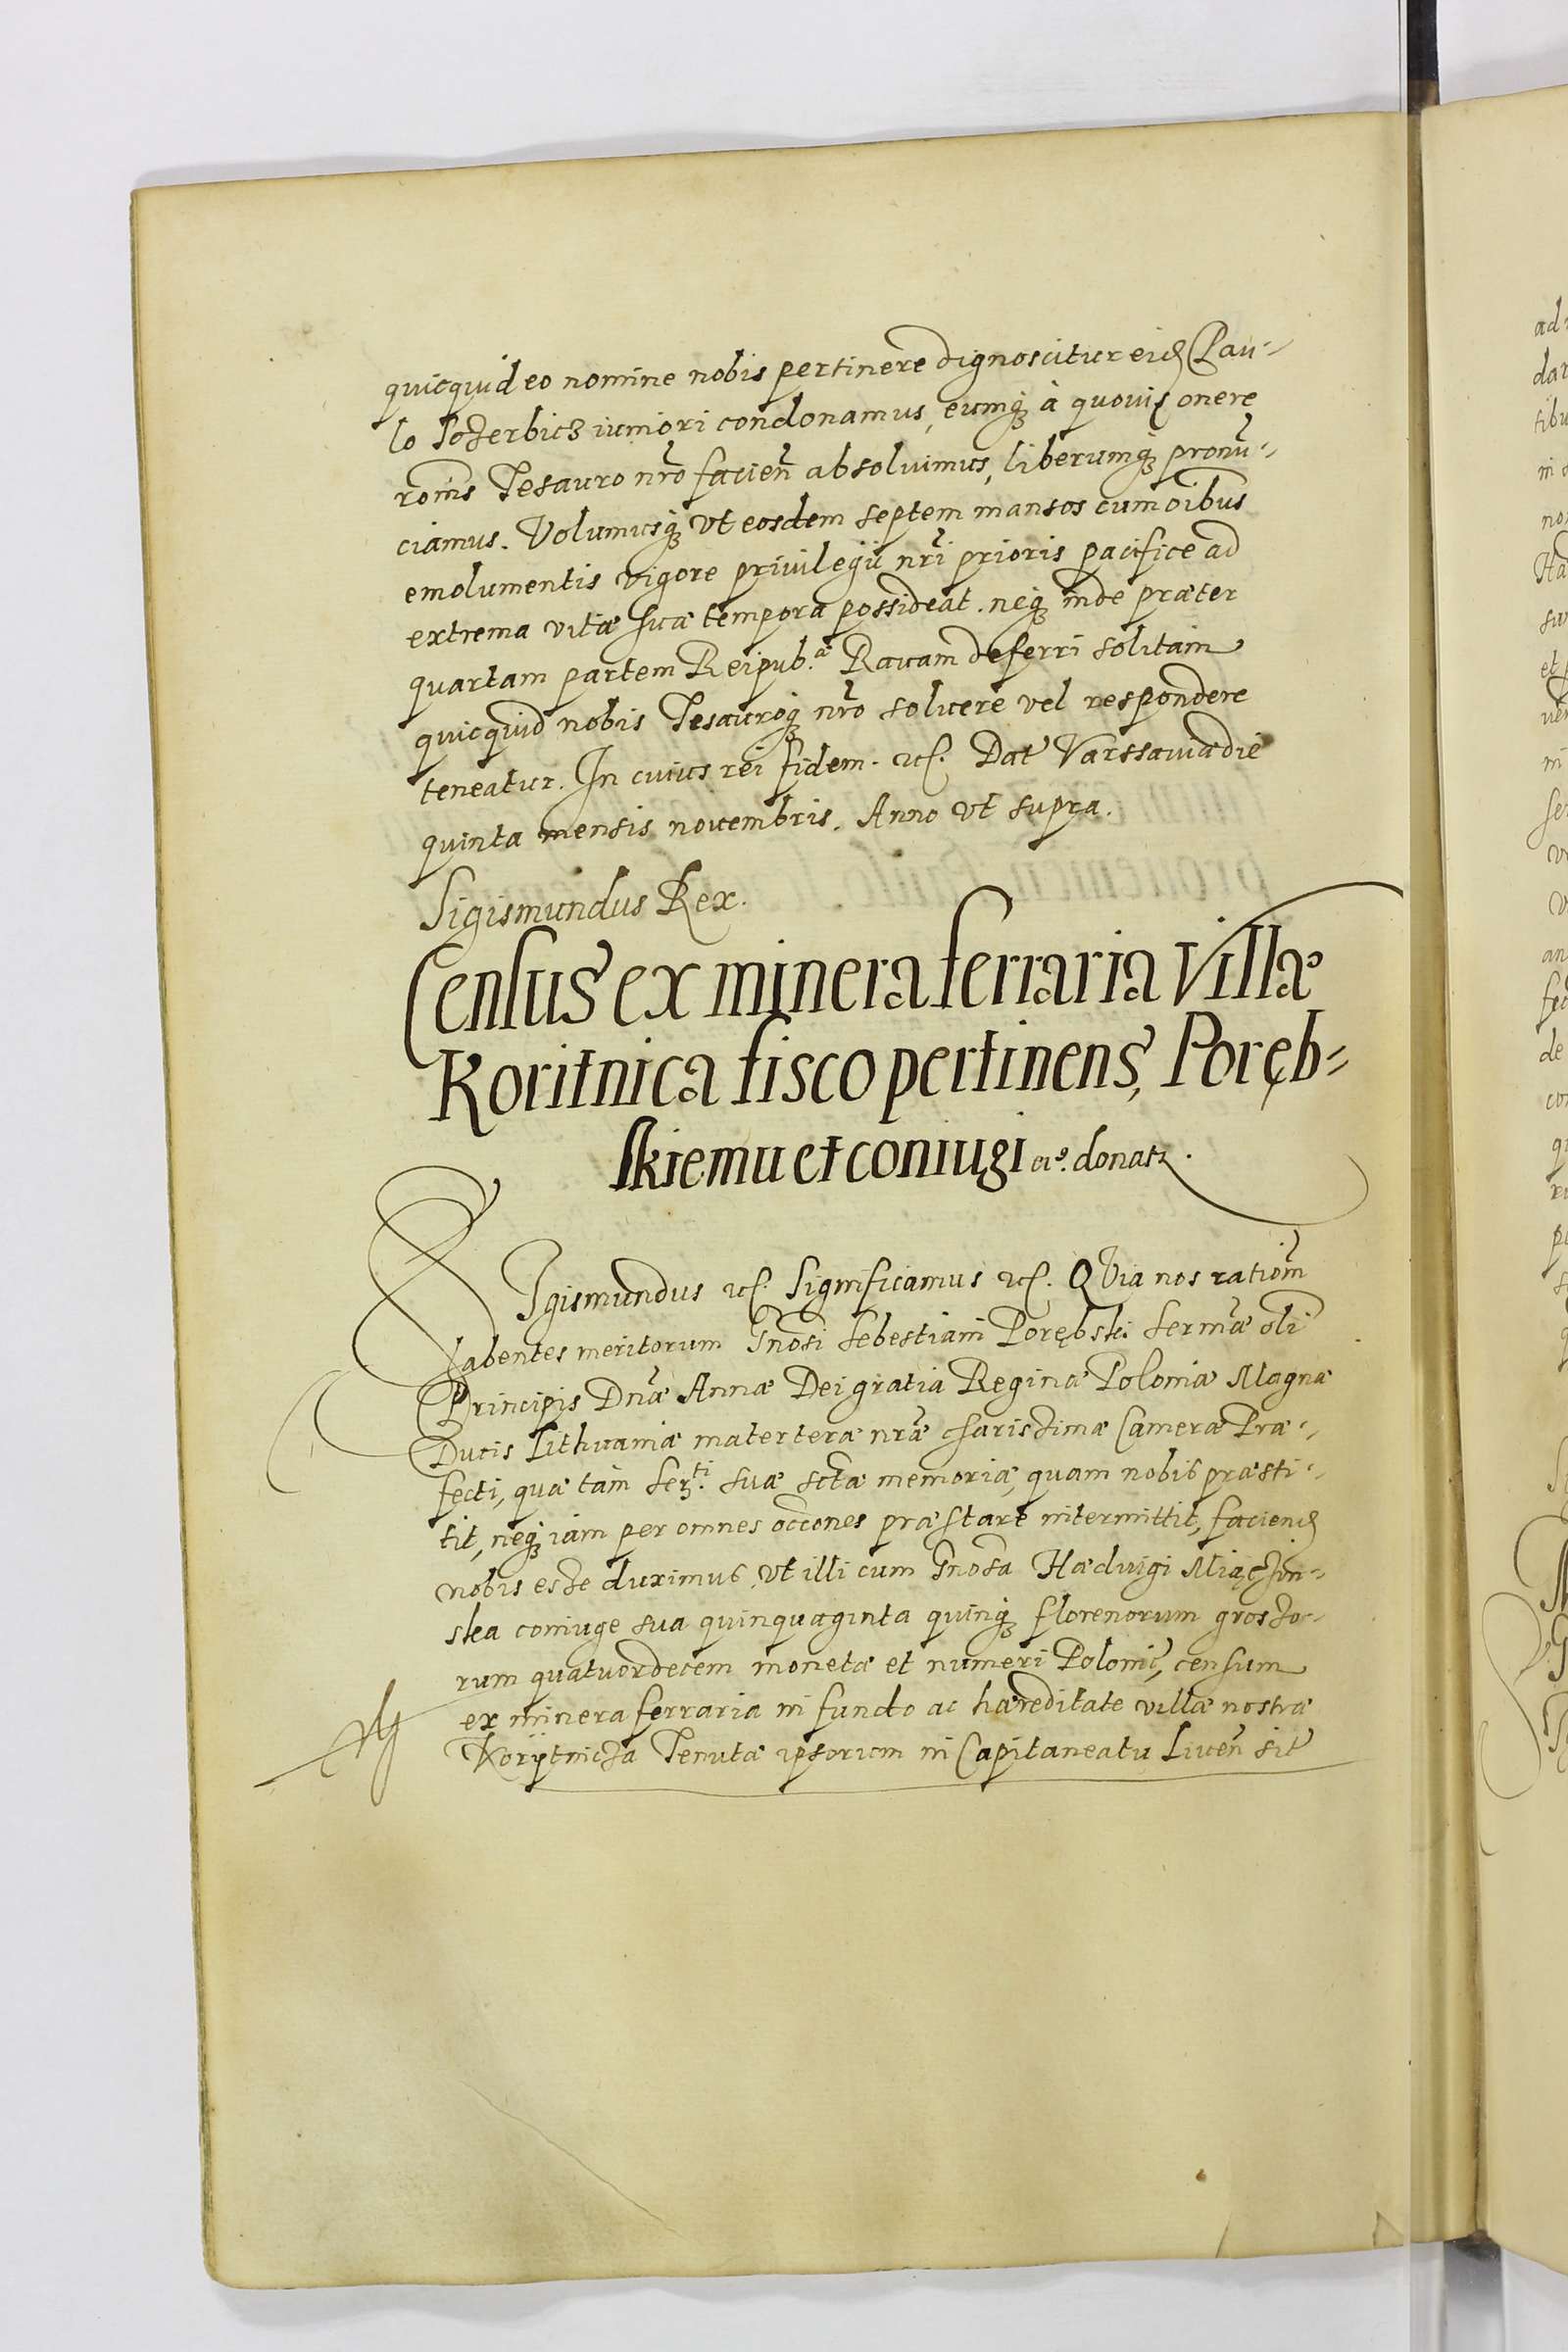 quicquid eo nomine nobis pertinere dignoscitur eid Pau-
lo Sczerbicz iuniori condonamus, eumq; à quovis onere
romis Tesauro nro facien absolvimus, liberumq; pronu-
ciamus. Volumusq; vt eosdem septem mansos cum oibus
emolumentis vigore privilegii nri prioris pacifice ad
extrema vitæ suæ tempora possideat. neq; inde præter
quartam partem Reipub.æ Ravam deferri solitam
quicquid nobis Tesauroq; nro soluere vel respondere
teneatur. In cuius rei fidem. etc. Dat Varssaviæ die
quinta mensis novembris. Anno vt supra.
Sigismundus Rex.
Census ex minera ferraria Villæ
Koritnica fisco pertinens, Poręb-
skiemu et coniugi ei9. donatr.
SIgismundus etc. Significamus etc. QVia nos rationem
habentes meritorum Gnosi Sebestiani Porębski Sermæ oli
Principis Dnæ Annæ Dei gratia Reginæ Poloniæ Magnæ
Ducis Lithuaniæ materteræ nræ charissimæ Cameræ Præ-
fecti, quæ tam Ser.ti suæ sctæ memoriæ, quam nobis præsti-
tit, neq; iam per omnes occones præstare intermittit, faciend
nobis esse duximus, vt illi cum Gnosa Hæduigi Miączin-
ska coniuge sua quinquaginta quinq; florenorum grosso-
rum quatuordecem monetæ et numeri Polonic, censum
ex minera ferraria in fundo ac hæreditate villæ nostræ
Korÿtnicza Tenutæ ipsorum in Capitaneatu Liven sit